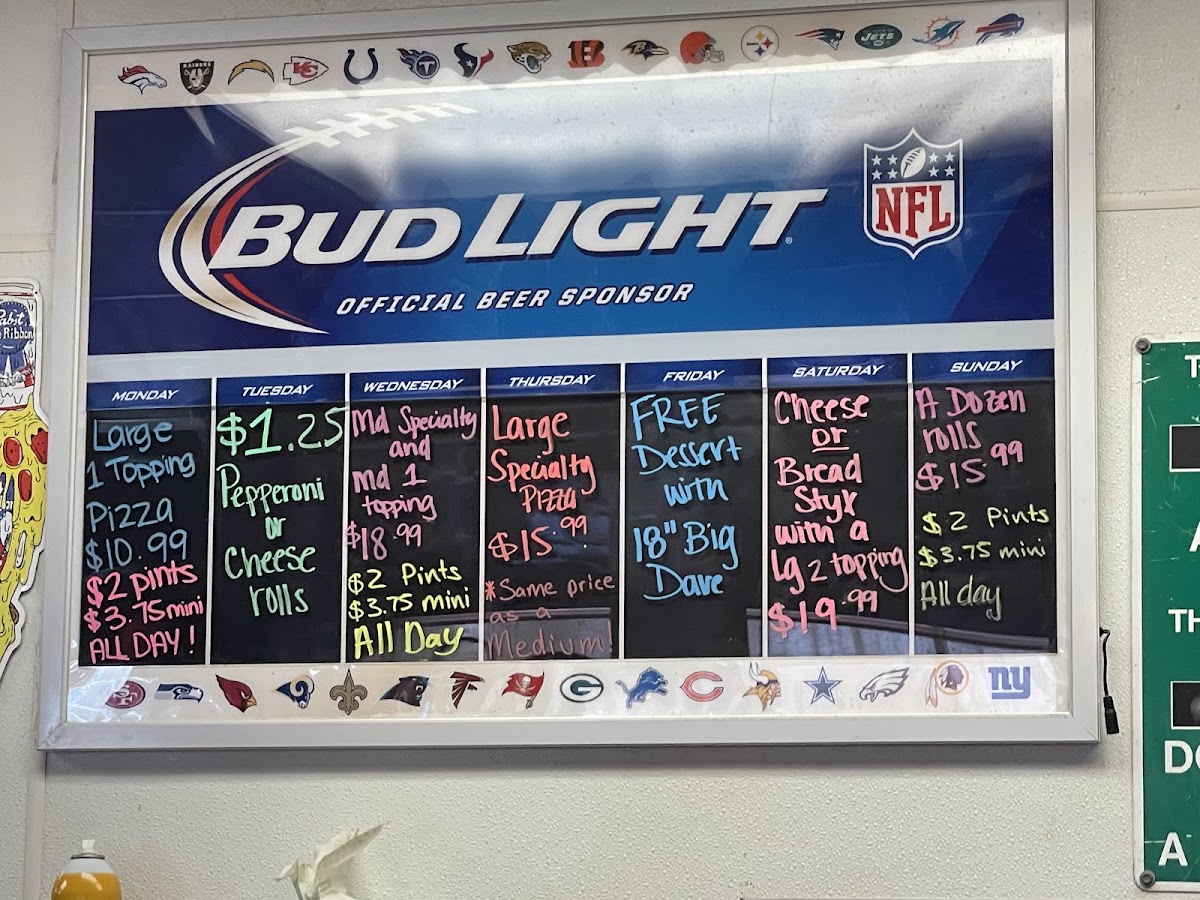 RAIDERS
KC
B
JETS
BUD LIGHT
OFFICIAL BEER SPONSOR
NFL
Pabst
Ribbon
MONDAY
Large
1 Topping
Pizza
$10.99
$2 pints
$3.75 mini
ALL DAY!
TUESDAY
$1.25
Pepperoni
or
Cheese
rolls
WEDNESDAY
Md Specialty
and
md 1
topping
$18.99
$2 Pints
$3.75 mini
All Day
THURSDAY
Large
Specialty
Pizza
$15.99
*Same price
as a
Medium!
FRIDAY
FREE
Dessert
with
18" Big
Dave
SATURDAY
Cheese
or
Bread
Styx
with a
Lg 2 topping
$19.99
SUNDAY
A Dozen
rolls
$15.99
$2 Pints
$3.75 mini
All day
SF
G
C
ny
TH
D
A